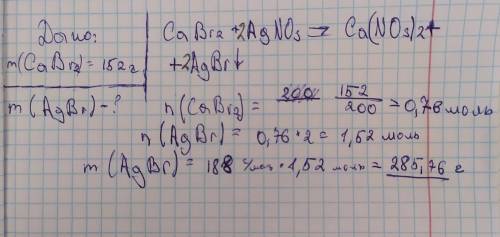 Дано:
m(CaBr2) = 152г
m(AgBr) - ?
CaBr2 + 2AgNO3 → Ca(NO3)2 +
+ 2AgBr↓
n(CaBr2) = 200 152/200 = 0,76 моль
n(AgBr) = 0,76 · 2 = 1,52 моль
m(AgBr) = 188 г/моль · 1,52 моль = 285,76 г